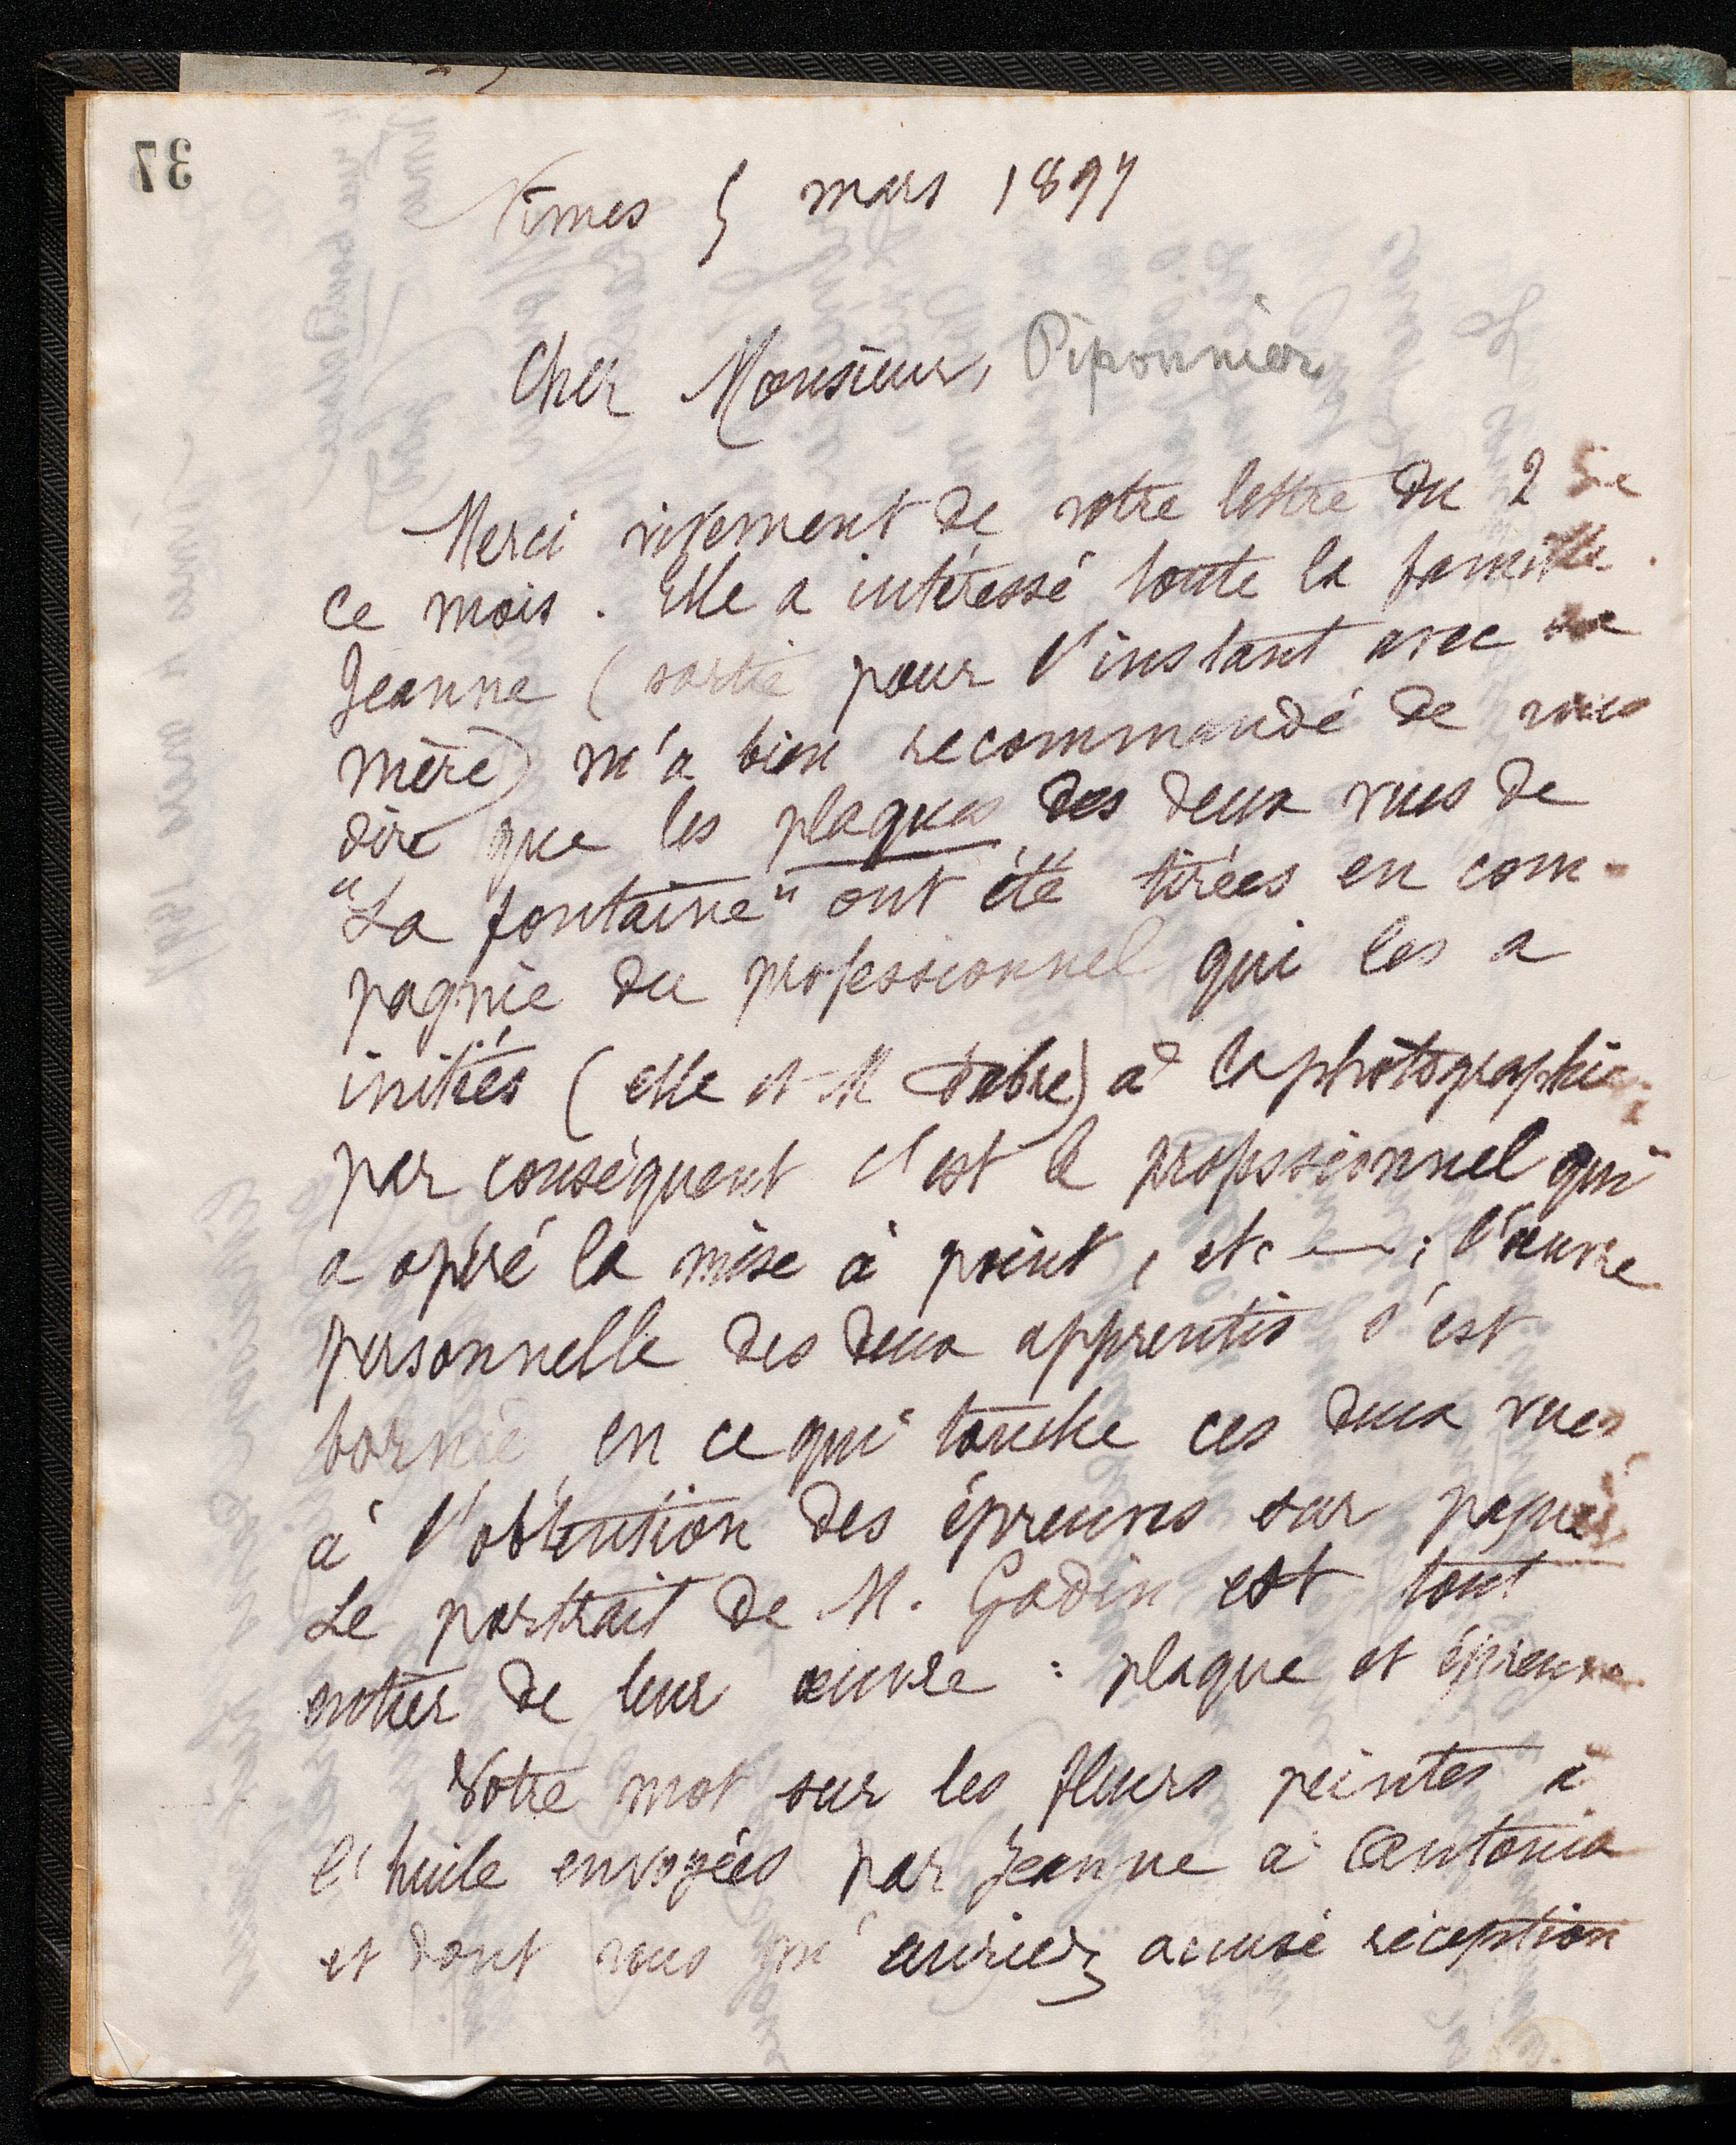 37
Nîmes 5 mars 1897
Cher Monsieur, Piponnier
Merci vivement de votre lettre du 2 de
ce mois. Elle a intéressé toute la famille.
Jeanne (sortie pour l'instant avec sa
mère) m'a bien recommandé de vous
dire que les plaques des deux vues de
"La fontaine" ont été tirées en com-
pagnie du professionnel qui les a
initiés (elle et M Fabre) à la photographie;
par conséquent c'est le professionnel qui
a opéré la mise à point, etc —; l'œuvre
personnelle des deux apprentis s'est
bornée, en ce qui touche ces deux vues,
à l'obtention des épreuves sur papier.
Le portrait de M. Godin est tout
entier de leur œuvre : plaque et épreuve.
Votre mot sur les fleurs peintes à
l'huile envoyées par Jeanne à Antonia
et dont vous m'auriez accusé réception